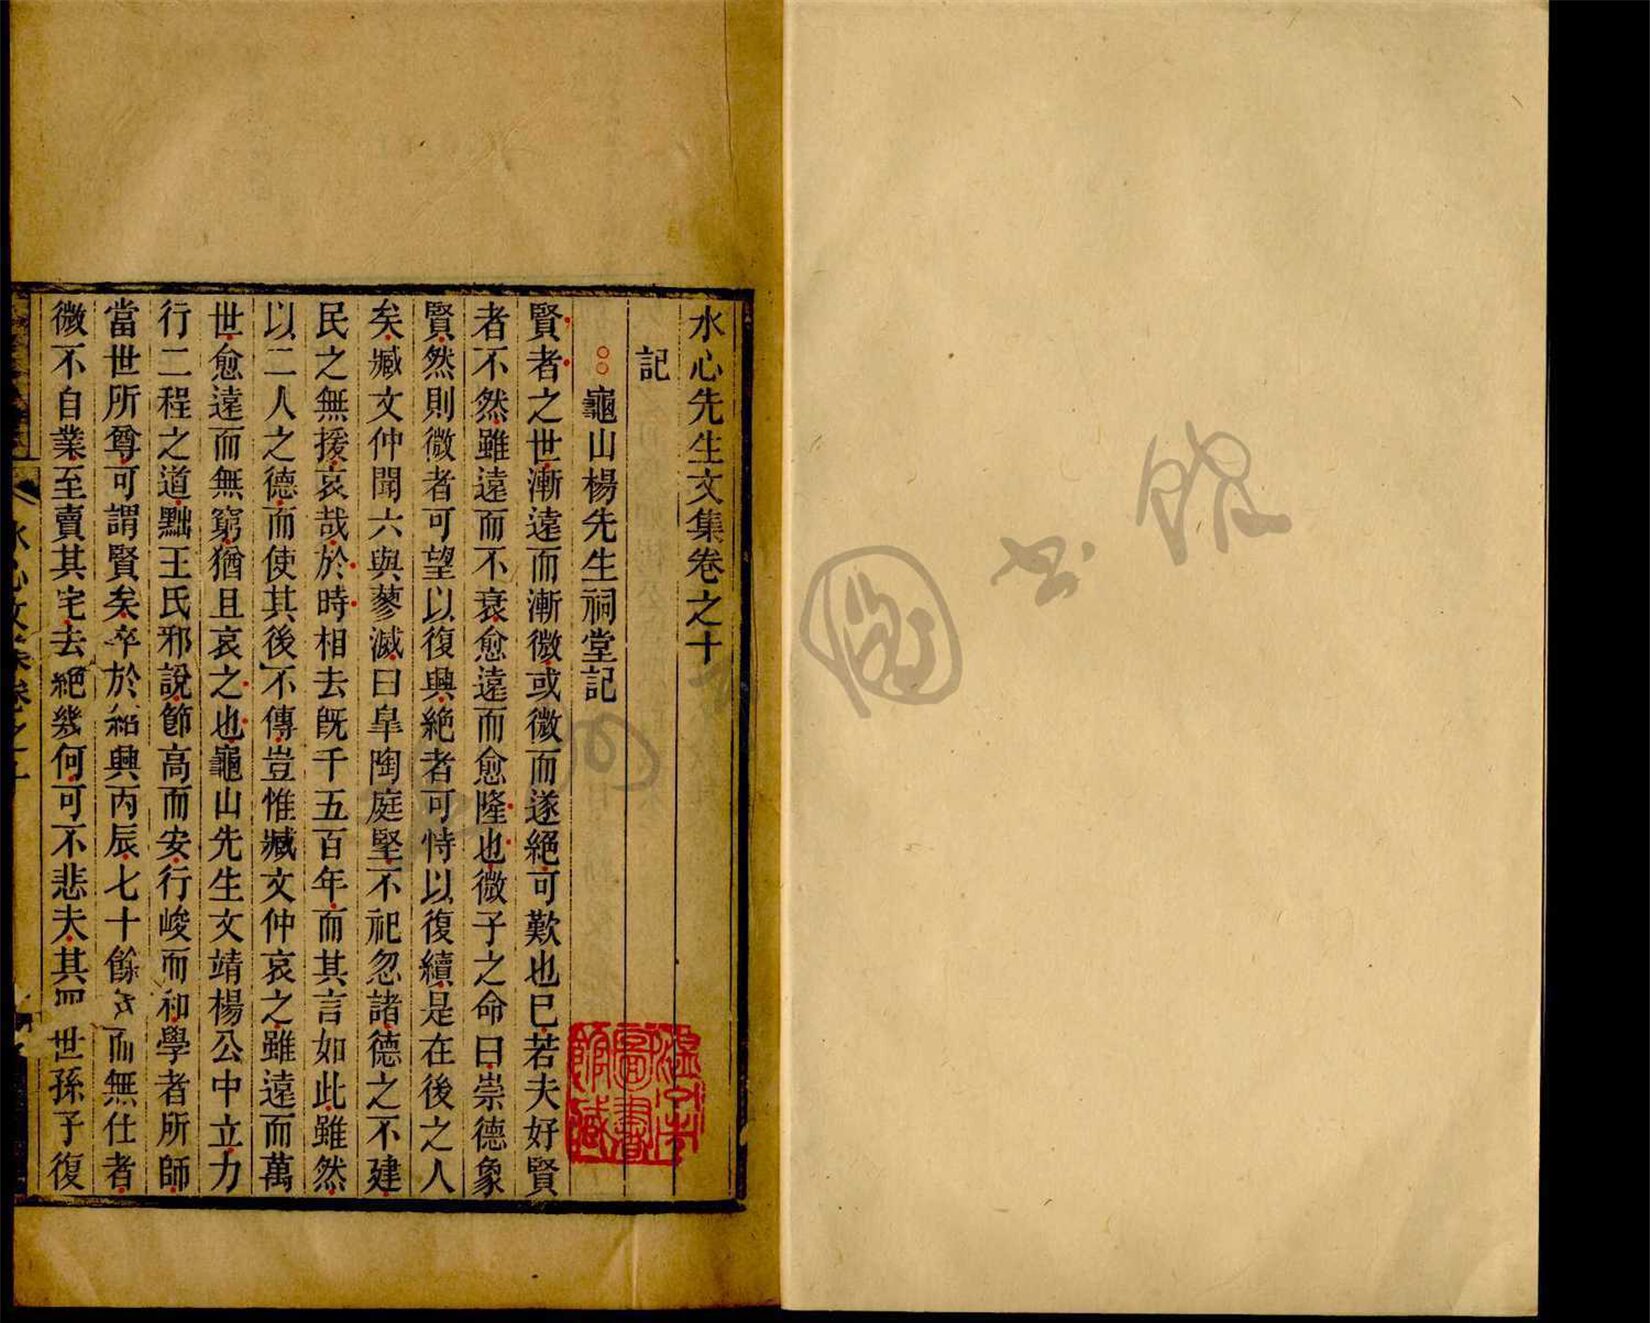 水心先生文集卷之十
記
龜山楊先生祠堂記
賢者之世漸遠而漸微或微而遂絕可歎也已若夫好賢
者不然雖遠而不衰愈遠而愈隆也微子之命曰崇德象
賢然則微者可望以復興絕者可恃以復續是在後之人
矣臧文仲聞六與蓼滅曰皐陶庭堅不祀忽諸德之不建
民之無援哀哉於時相去旣千五百年而其言如此雖然
以二人之德而使其後不傳豈惟臧文仲哀之雖遠而萬
世愈遠而無窮猶且哀之也龜山先生文靖楊公中立力
行二程之道黜王氏邪說節高而安行峻而和學者所師
當世所尊可謂賢矣卒於紹興丙辰七十餘年而無仕者
微不自業至賣其宅去絕幾何可不悲夫其四世孫子復
水心文集卷之十
圖書館
圖書館藏